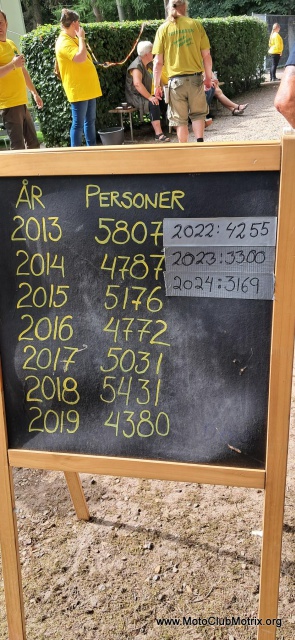 ÅR PERSONER
2013 5807
2014 4787
2015 5176
2016 4772
2017 5031
2018 5431
2019 4380
2022: 4255
2023: 3300
2024: 3169
www.MotoClubMotrix.org